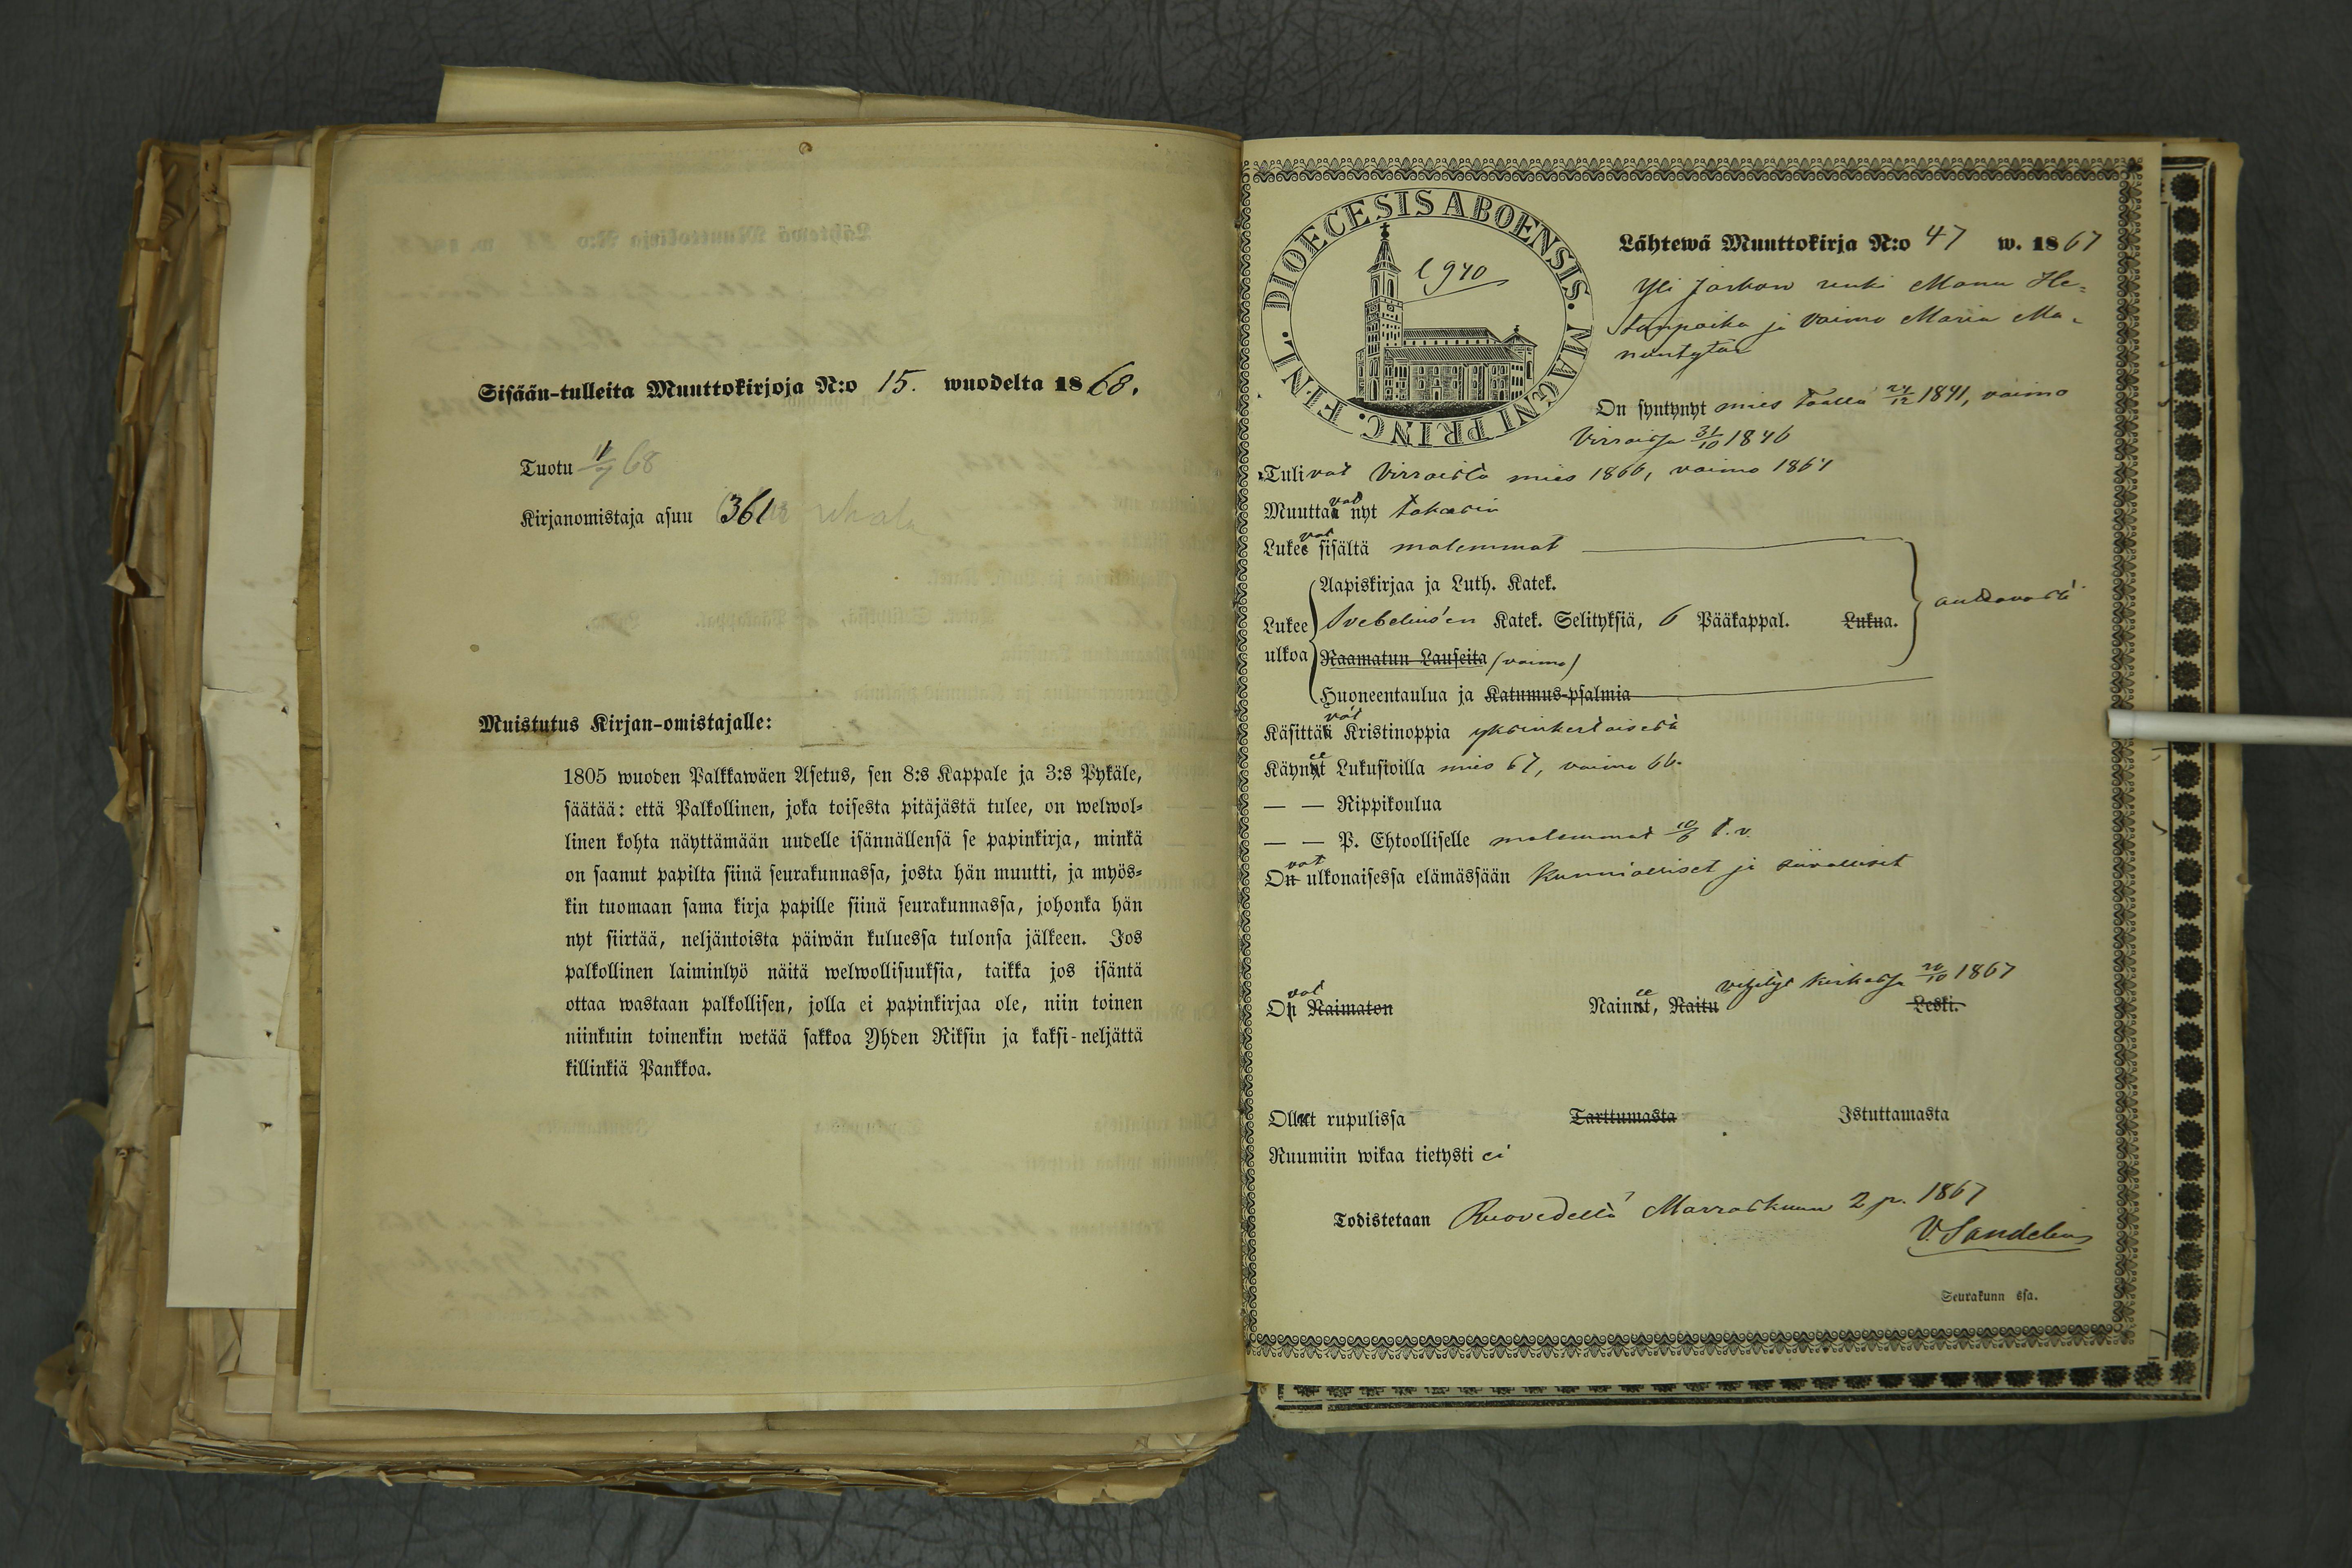 Sisään-tulleita Muuttokirjoja N:o 15. wuodelta 1868.
Tuotu 68
Kirjanomistaja asuu 361
Muistutus Kirjan-omistajalle:
1805 wuoden Palkkawäen Asetus, sen 8:s Kappale ja 3:s Pykäle,
säätää: että Palkollinen, joka toisesta pitäjästä tulee, on welwol-
linen kohta näyttämään uudelle isännällensä se papinkirja, minkä
on saanut papilta siinä seurakunnassa, josta hän muutti, ja myös-
kin tuomaan sama kirja papille siinä seurakunnassa, johonka hän
nyt siirtää, neljäntoista päiwän kuluessa tulonsa jälkeen. Jos
palkollinen laiminlyö näitä welwollisuuksia, taikka jos isäntä
ottaa wastaan palkollisen, jolla ei papinkirjaa ole, niin toinen
niinkuin toinenkin wetää sakkoa Yhden Riksin ja kaksi-neljättä
killinkiä Pankkoa.
DIOECESIS ABOENSIS. MAGNI PRINC. FINL.
l 940
Lähtewä Muuttokirja N:o 47 w. 1867
Yli renki Manu
ja vaimo Maria Ma-
nuntytär
On syntynyt mies täällä 24/12 1841, vaimo
Virroissa 31/10 1846
Tulivat Virroista mies 1866, vaimo 1867
Muuttavat nyt takasin
Lukevat sisältä molemmat
Lukee ulkoa
Aapiskirjaa ja Luth. Katek.
Svebelius'en Katek. Selityksiä, 6 Pääkappal. Lukua.
Raamatun Lauseita (vaimo)
Huoneentaulua ja Katumus-psalmia
auttavasti
Käsittävät Kristinoppia yksinkertaisesti
Käyneet Lukusioilla mies 67, vaimo 66.
— — Rippikoulua
— — P. Ehtoolliselle molemmat t.v.
Ovat ulkonaisessa elämässään kunnialliset ja siivolliset
vihityt kirkossa 20/10 1867
Ovat Naimaton Naineet, Naitu Leski.
Ollut rupulissa Tarttumasta Istuttamasta
Ruumiin wikaa tietysti ei
Todistetaan Ruovedellä Marraskuun 2 p. 1867
V. Sandelius
Seurakunn ssa.